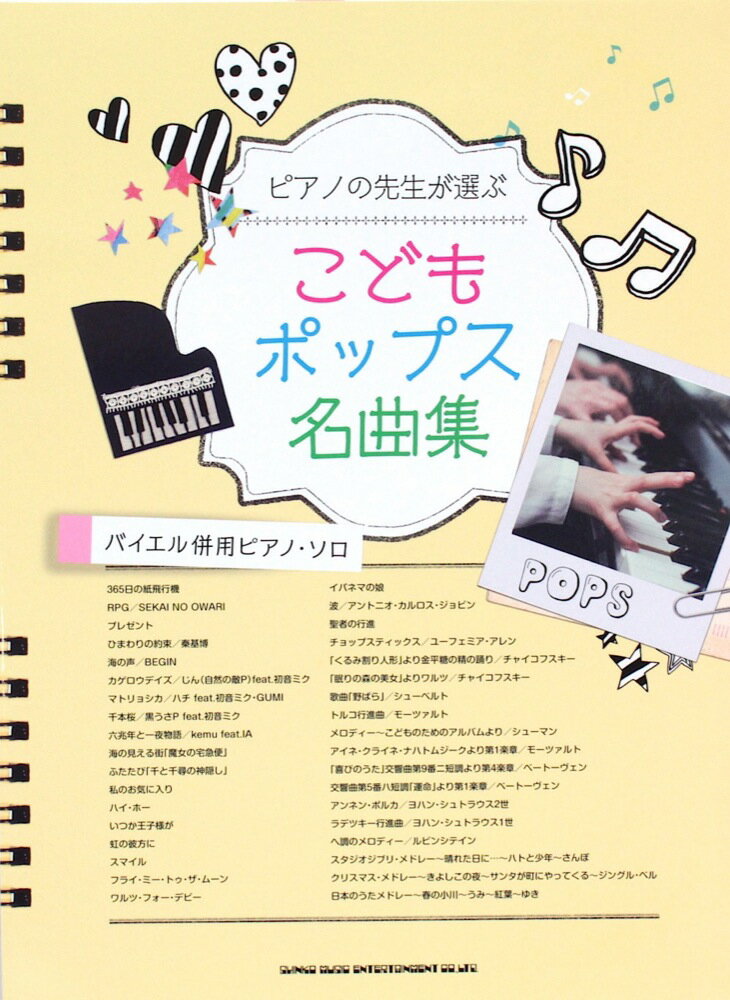 ピアノの先生が選ぶ
こども
ポップス
名曲集
POPS
バイエル併用ピアノ・ソロ
365日の紙飛行機
RPG／SEKAI NO OWARI
プレゼント
ひまわりの約束／秦基博
海の声／BEGIN
カゲロウデイズ／じん(自然の敵P)feat.初音ミク
マトリョシカ／ハチ feat.初音ミク・GUMI
千本桜／黒うさP feat.初音ミク
六兆年と一夜物語／kemu feat.IA
海の見える街「魔女の宅急便」
ふたたび「千と千尋の神隠し」
私のお気に入り
ハイ・ホー
いつか王子様が
虹の彼方に
スマイル
フライ・ミー・トゥ・ザ・ムーン
ワルツ・フォー・デビー
イパネマの娘
波／アントニオ・カルロス・ジョビン
聖者の行進
チョップスティックス／ユーフェミア・アレン
「くるみ割り人形」より金平糖の精の踊り／チャイコフスキー
「眠りの森の美女」よりワルツ／チャイコフスキー
歌曲「野ばら」／シューベルト
トルコ行進曲／モーツァルト
メロディー〜こどものためのアルバムより／シューマン
アイネ・クライネ・ナハトムジークより第1楽章／モーツァルト
「喜びのうた」交響曲第9番ニ短調より第4楽章／ベートーヴェン
交響曲第5番ハ短調「運命」より第1楽章／ベートーヴェン
アンネン・ポルカ／ヨハン・シュトラウス2世
ラデツキー行進曲／ヨハン・シュトラウス1世
ヘ調のメロディー／ルビンシテイン
スタジオジブリ・メドレー〜晴れた日に…〜ハトと少年〜さんぽ
クリスマス・メドレー〜きよしこの夜〜サンタが町にやってくる〜ジングル・ベル
日本のうたメドレー〜春の小川〜うみ〜紅葉〜ゆき
SHINKO MUSIC ENTERTAINMENT CO.,LTD.